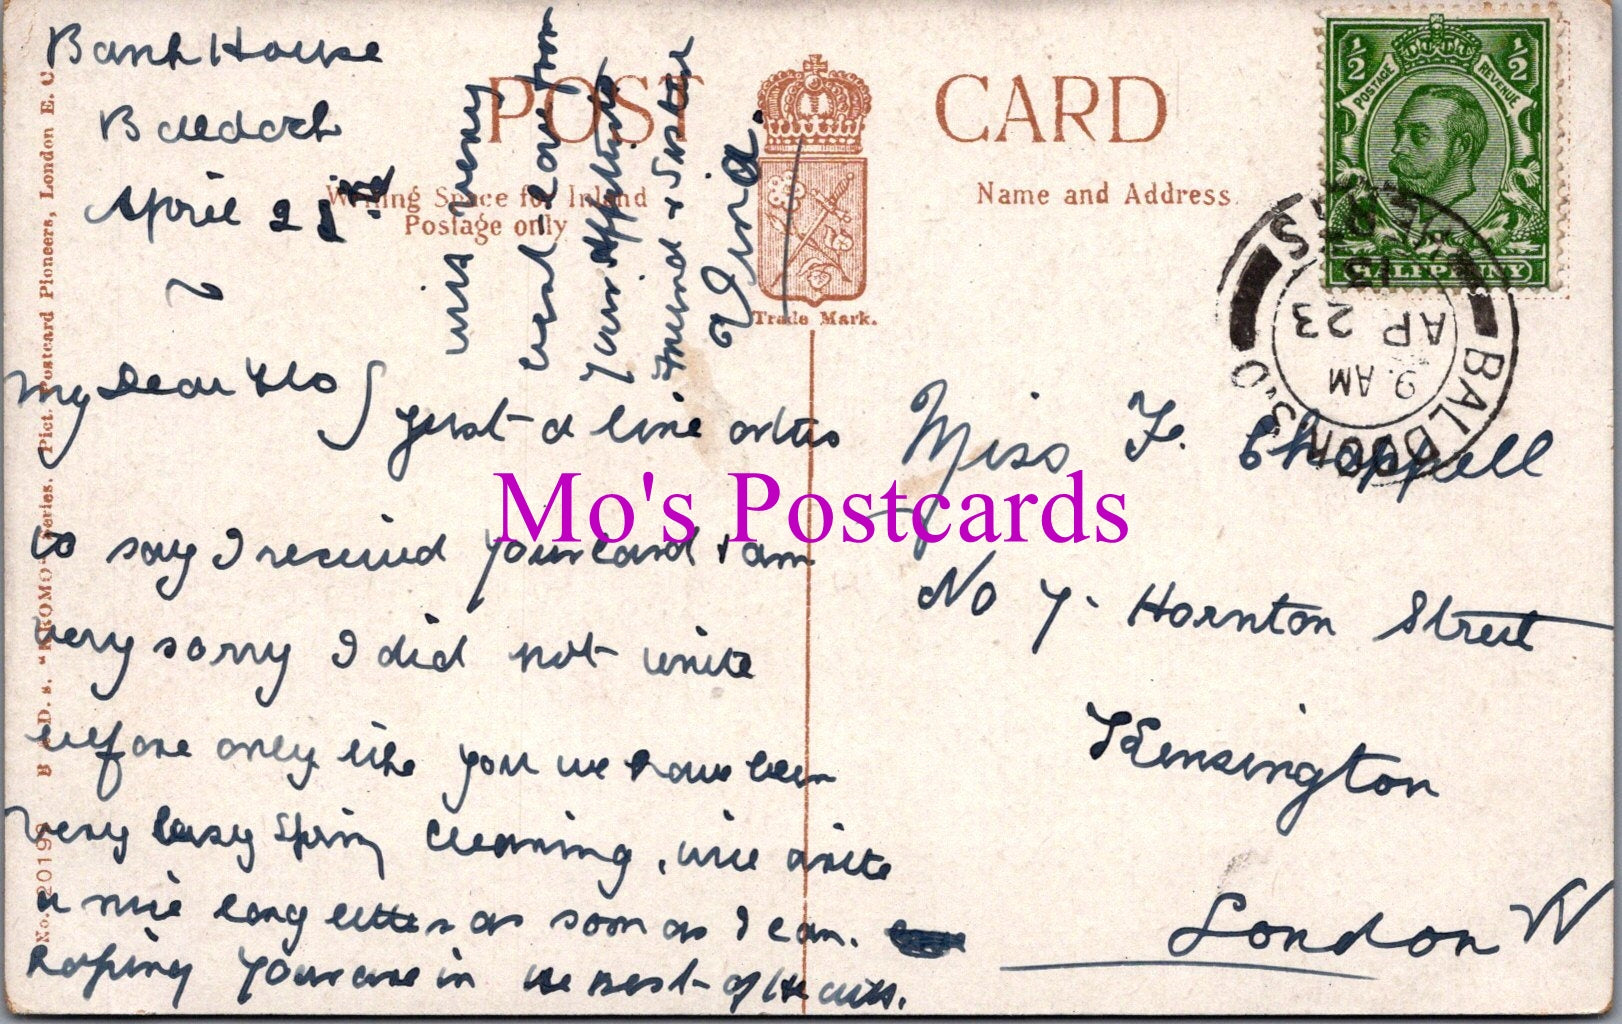 Bank House
Baldock
April 22nd
My Dear Flo
just a line or two
to say I received your card & am
very sorry I did not write
before only like you we have been
very busy Spring Cleaning, will write
a nice long letter as soon as I can.
hoping you are in the best of health.
with very
best love from
your affectionate
friend & Sister
POST CARD
Writing Space for Inland
Postage only
Name and Address
Trade Mark.
POSTAGE REVENUE
½ ½
HALFPENNY
BALDOCK
9. AM
AP 23
Miss F. Chappell
No 7. Hornton Street
Kensington
London W
Mo's Postcards
No. 20199 B & D. s. "KROMO" Series. Pict. Postcard Pioneers, London E. C